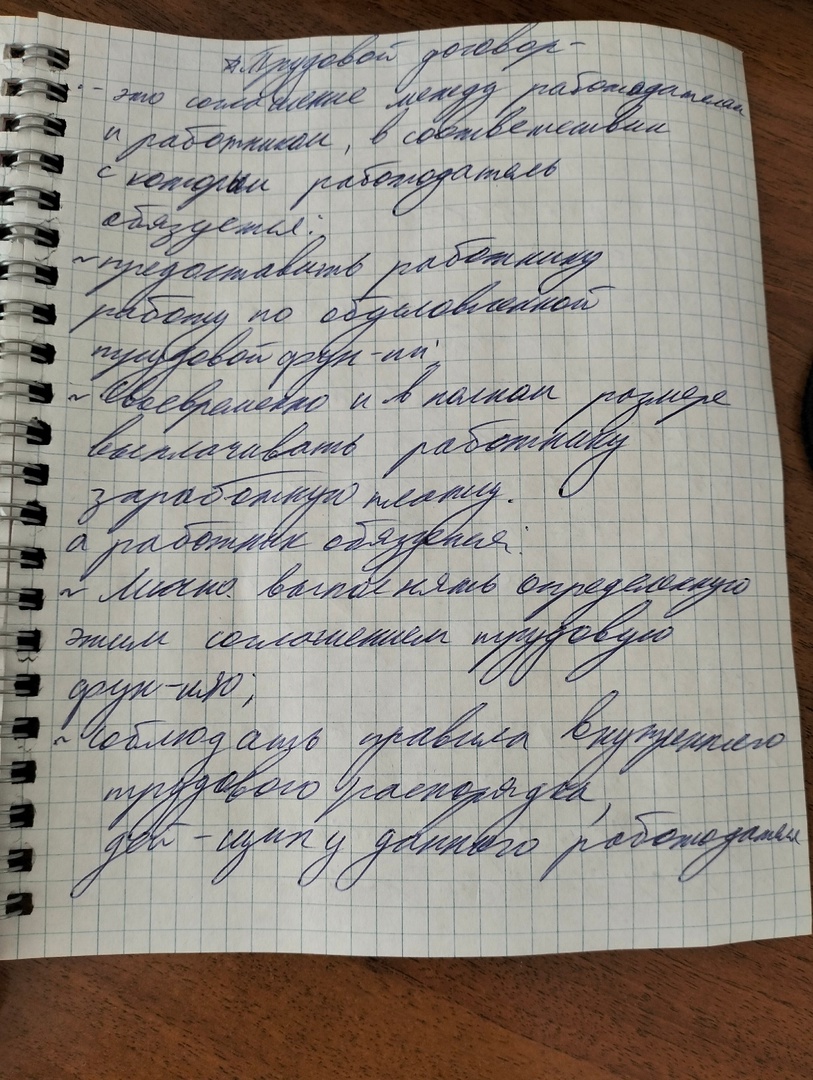 * Трудовой договор -
- это соглашение между работодателем
и работником, в соответствии
с которым работодатель
обязуется:
~ предоставить работнику
работу по обусловленной
трудовой фун-ии;
~ Своевременно и в полном размере
выплачивать работнику
заработную плату.
а работник обязуется:
~ Лично выполнять определенную
этим соглашением трудовую
фун-ию;
~ соблюдать правила внутреннего
трудового распорядка,
дей-щих у данного работодателя